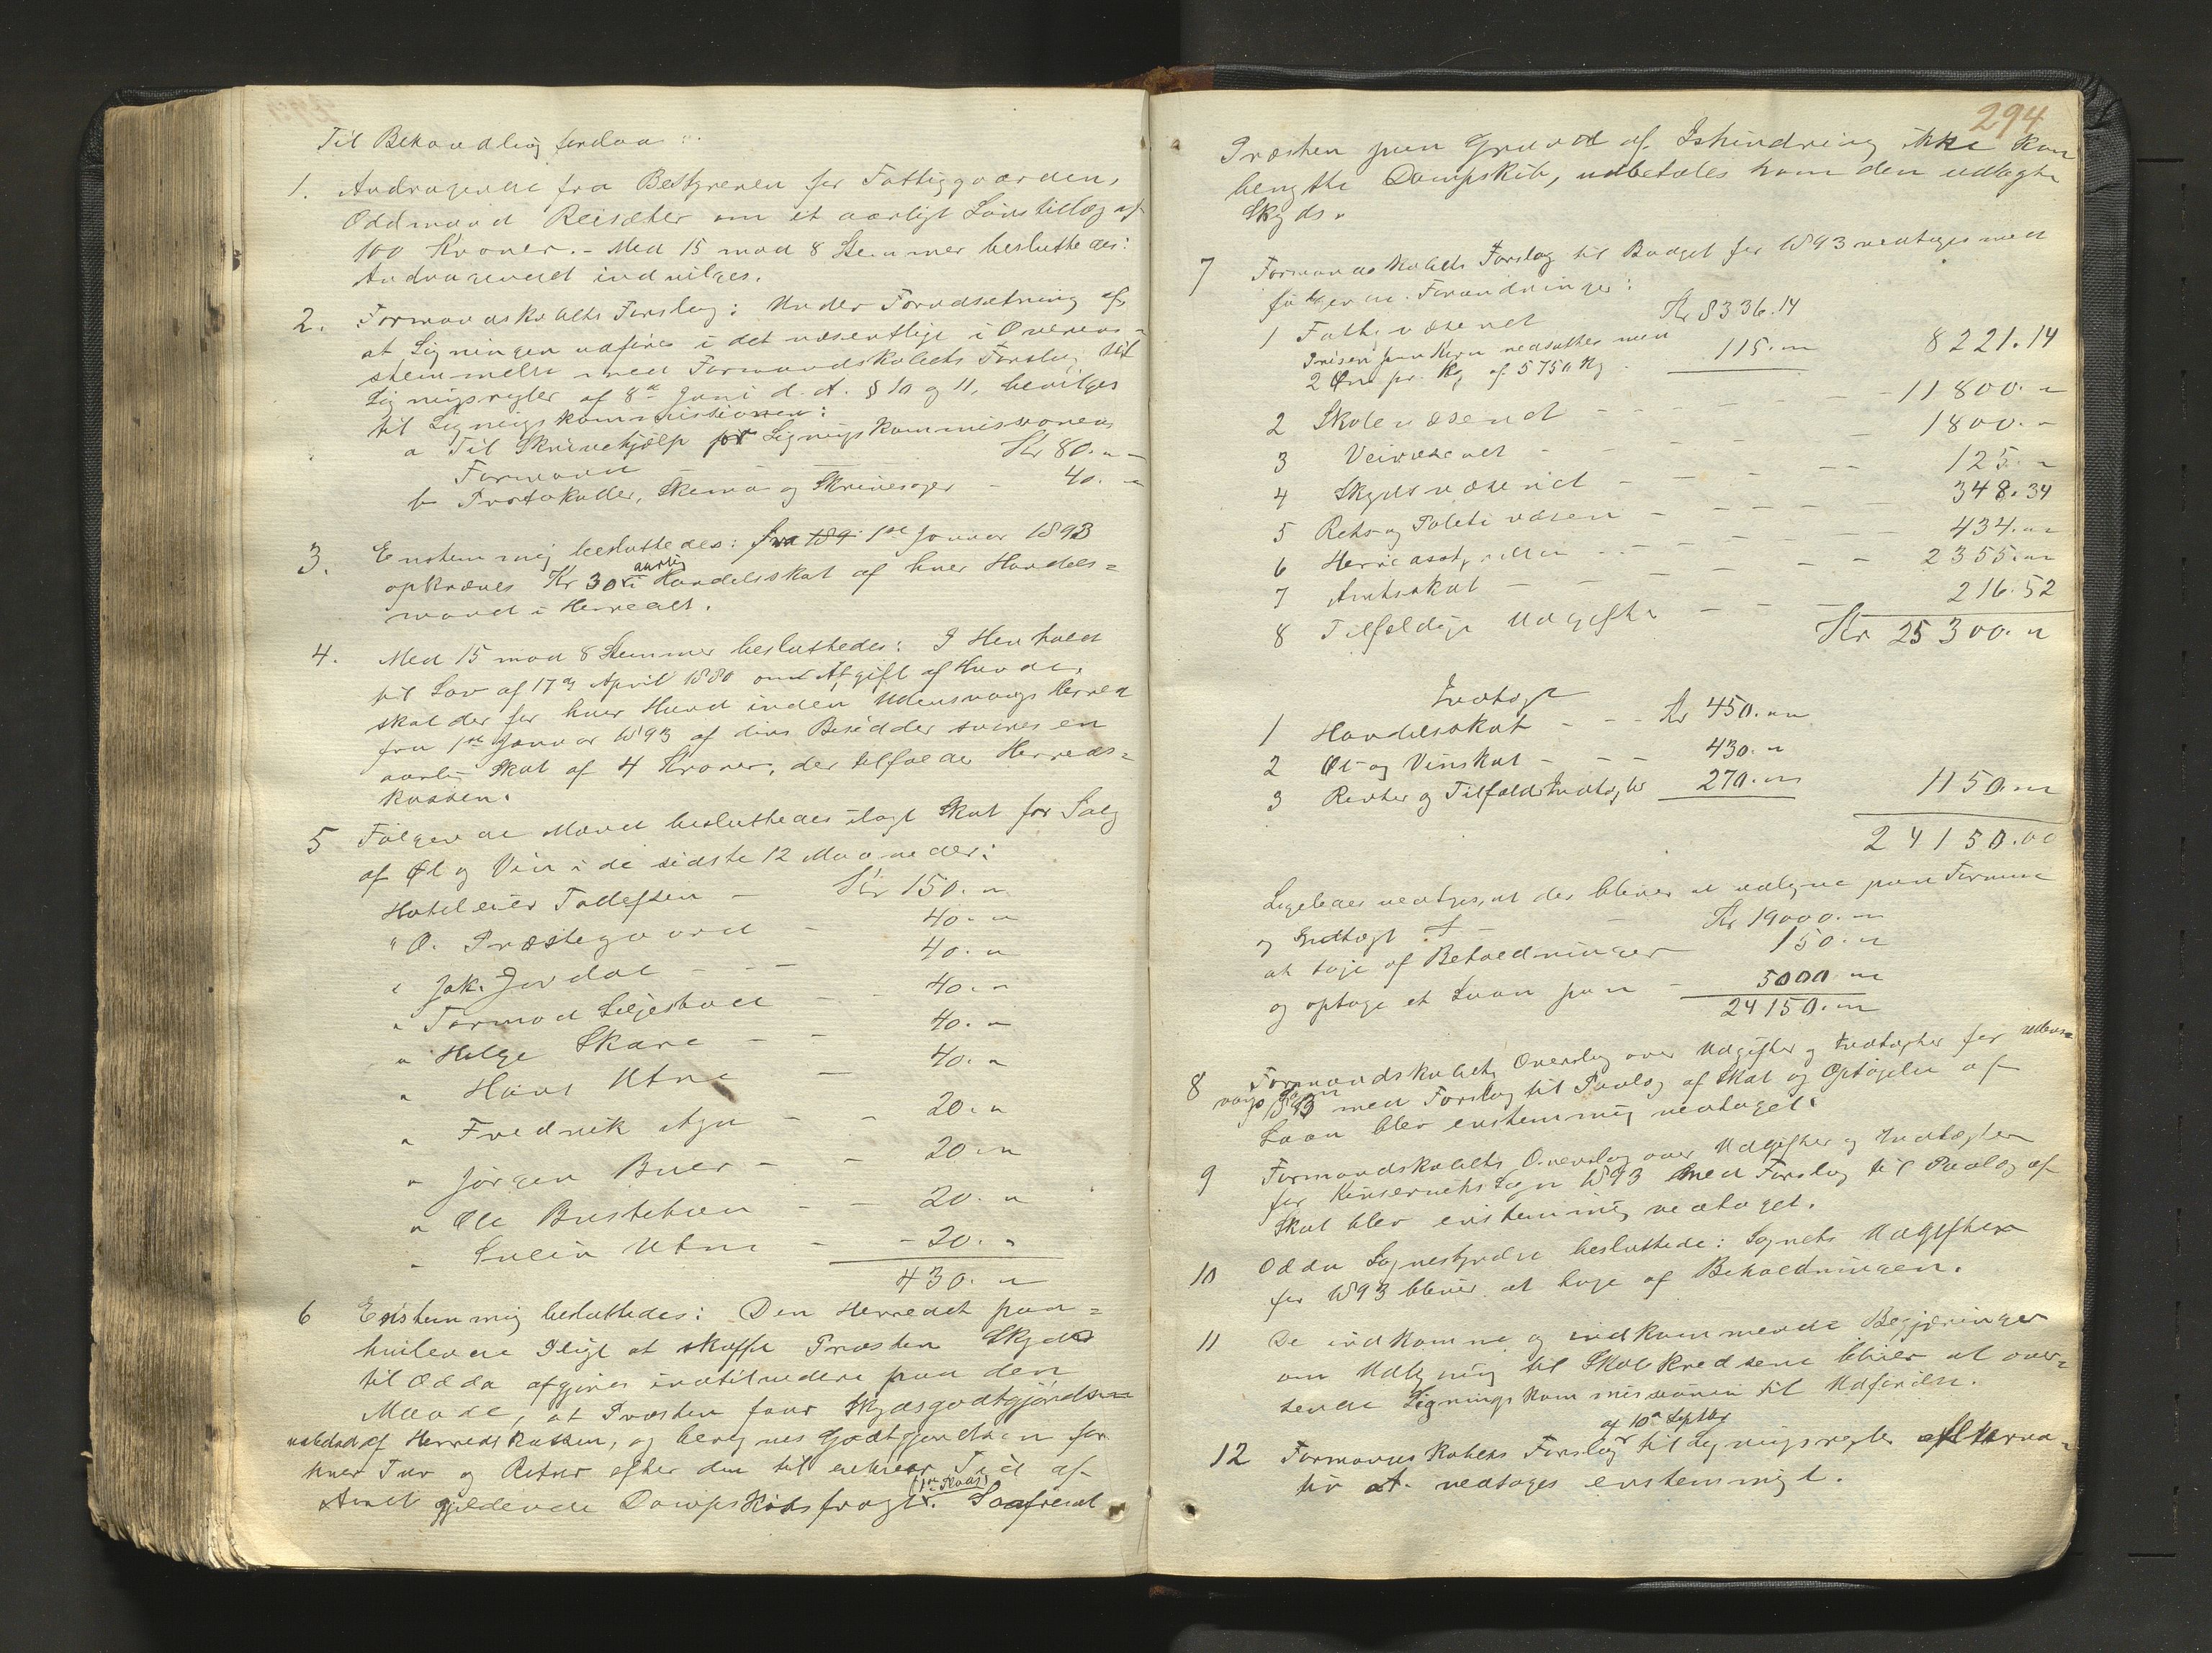 Til Behandling forelaa:
1. Andragende fra Bestyreren for Fattiggaarden,
Oddmund Reisæter om et aarligt Lønstillæg af
100 Kroner. - Med 15 mod 8 Stemmer besluttedes:
Andragendet indvilges.
2. Formandskabets Forslag: Under Forudsætning af,
at Ligningen udføres i det væsentlige i Overens-
stemmelse med Formandskabets Forslag til
Ligningsregler af 8de Juni d. A. § 10 og 11, bevilges
til Ligningskommissionen:
a Til Skrivehjælp for Ligningskommissionens
Formand Kr 80. "
b Protokoller, Skema og Skrivesager - 40. "
3. Enstemmig besluttedes: fra 189 1ste Januar 1893
opkræves Kr 30 aarlig i Handelsskat af hver Handels=
mand i Herredet.
4. Med 15 mod 8 Stemmer besluttedes: I Henhold
til Lov af 17de April 1880 om Afgift af Hunde,
skal der for hver Hund inden Udensvangs Herred
fra 1ste Januar 1893 af dens Besidder svares en
aarlig Skat af 4 Kroner, der tilfalder Herreds=
kassen.
5 Følgende Mænd besluttedes ilagt Skat for Salg
af Øl og Vin i de sidste 12 Maaneder:
Hoteleier Tollefsen - Kr 150. "
" O. Præstegaard - 40. "
" Jak. Jordal - - - 40. "
" Tormod Liljestoel - - 40. "
" Helge Skare - - 40. "
" Hans Utne - 40. "
" Fredrik Aga - - 20. "
" Jørgen Buer - - 20. "
" Ole Bustetun - - 20. "
" Svein Utne - - 20. "
430. "
6 Enstemmig besluttedes: Den Herredet paa=
hvilende Pligt at skaffe Præsten Skyds
til Odda afgjøres indtilvidere paa den
Maade, at Præsten faar Skydsgodtgjørelsen
udbetalt af Herredskassen, og beregnes Godtgjørelsen for
hver Tur og Retur efter den til enhver Tid af
Amtet gjeldende Dampskibsfragt (1ste Plads). Saafremt
294
Præsten paa Grund af Ishindring ikke kan
benytte Dampskib, udbetales ham den udlagte
Skyds.
7 Formandskabets Forslag til Budget for 1893 vedtages med
følgende Forandringer:
1 Fattigvæsenet Kr 8336.14
Prisen paa Korn nedsættes med
2 Øre pr. Kg af 5750 Kg. 115. " 8221.14
2 Skolevæsenet - - - - - - 11800. "
3 Veivæsenet - - - - 1800. "
4 Skydsvæsenet - - - - 125. "
5 Rets og Politivæsen - - - - 348.34
6 Herredsstyrelsen - - - - - 434. "
7 Amtsskat - - - - - - 2355. "
8 Tilfældige Udgifter - - - 216.52
Kr 25300. "
Indtægt
1 Handelsskat - - - Kr 450. "
2 Øl- og Vinskat - - - 430. "
3 Renter og Tilfeldt Indtægter 270. " 1150. "
24150.00
Ligeledes vedtages, at der bliver at udligne paa Formue
og Indtægt - Kr 19000. "
at tage af Beholdninger 150. "
og optage et Laan paa - 5000 "
24150. "
8 Formandskabets Overslag over Udgifter og Indtægter for Udens=
vangs Sogn 1893 med Forslag til Paalæg af Skat og Optagelse af
Laan blev enstemmig vedtaget.
9 Formandskabets Overslag over Udgifter og Indtægter
for Kinserviks Sogn 1893 med Forslag til Paalæg af
Skat blev enstemmig vedtaget.
10 Odda Sognestyrelse besluttede: Sognets Udgifter
for 1893 bliver at tage af Beholdningen.
11 De indkomne og indkommende Begjæringer
om Udligning til Skolekredsene bliver at over=
sende Ligningskommissionen til Udførelse.
12 Formandskabets Forslag af 10de Septbr til Ligningsregler alterna=
tiv A. vedtages enstemmigt.